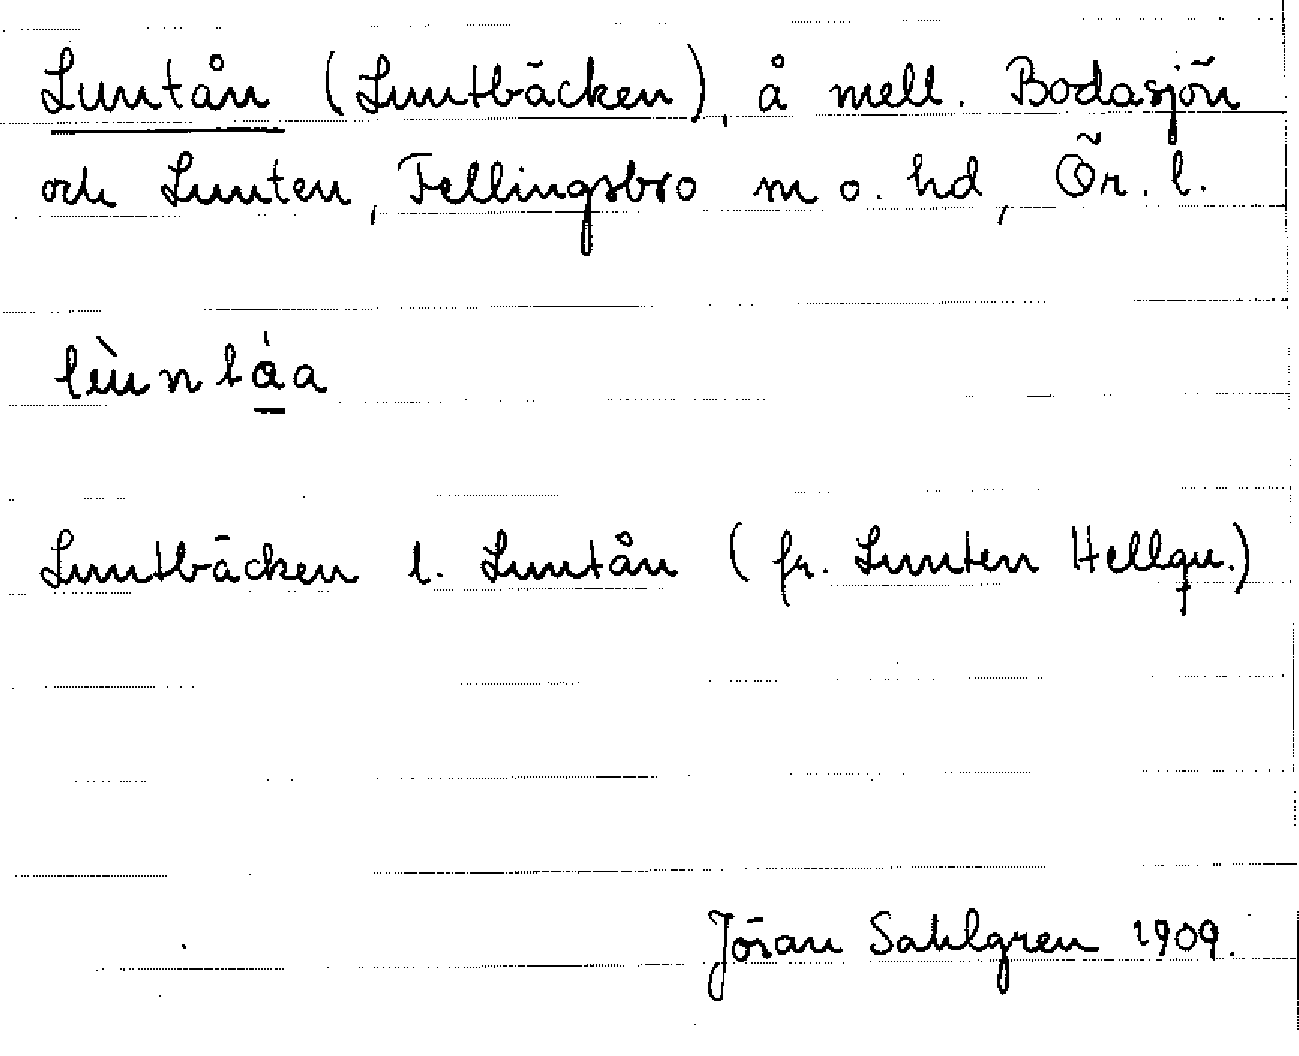 Luntån (Luntbäcken), å mell. Bodasjön
och Lunten, Fellingsbro m o. hd, Ör. l.
lùntá̱a
Luntbäcken l. Luntån (fr. Lunten Hellqu.)
Jöran Sahlgren 1909.